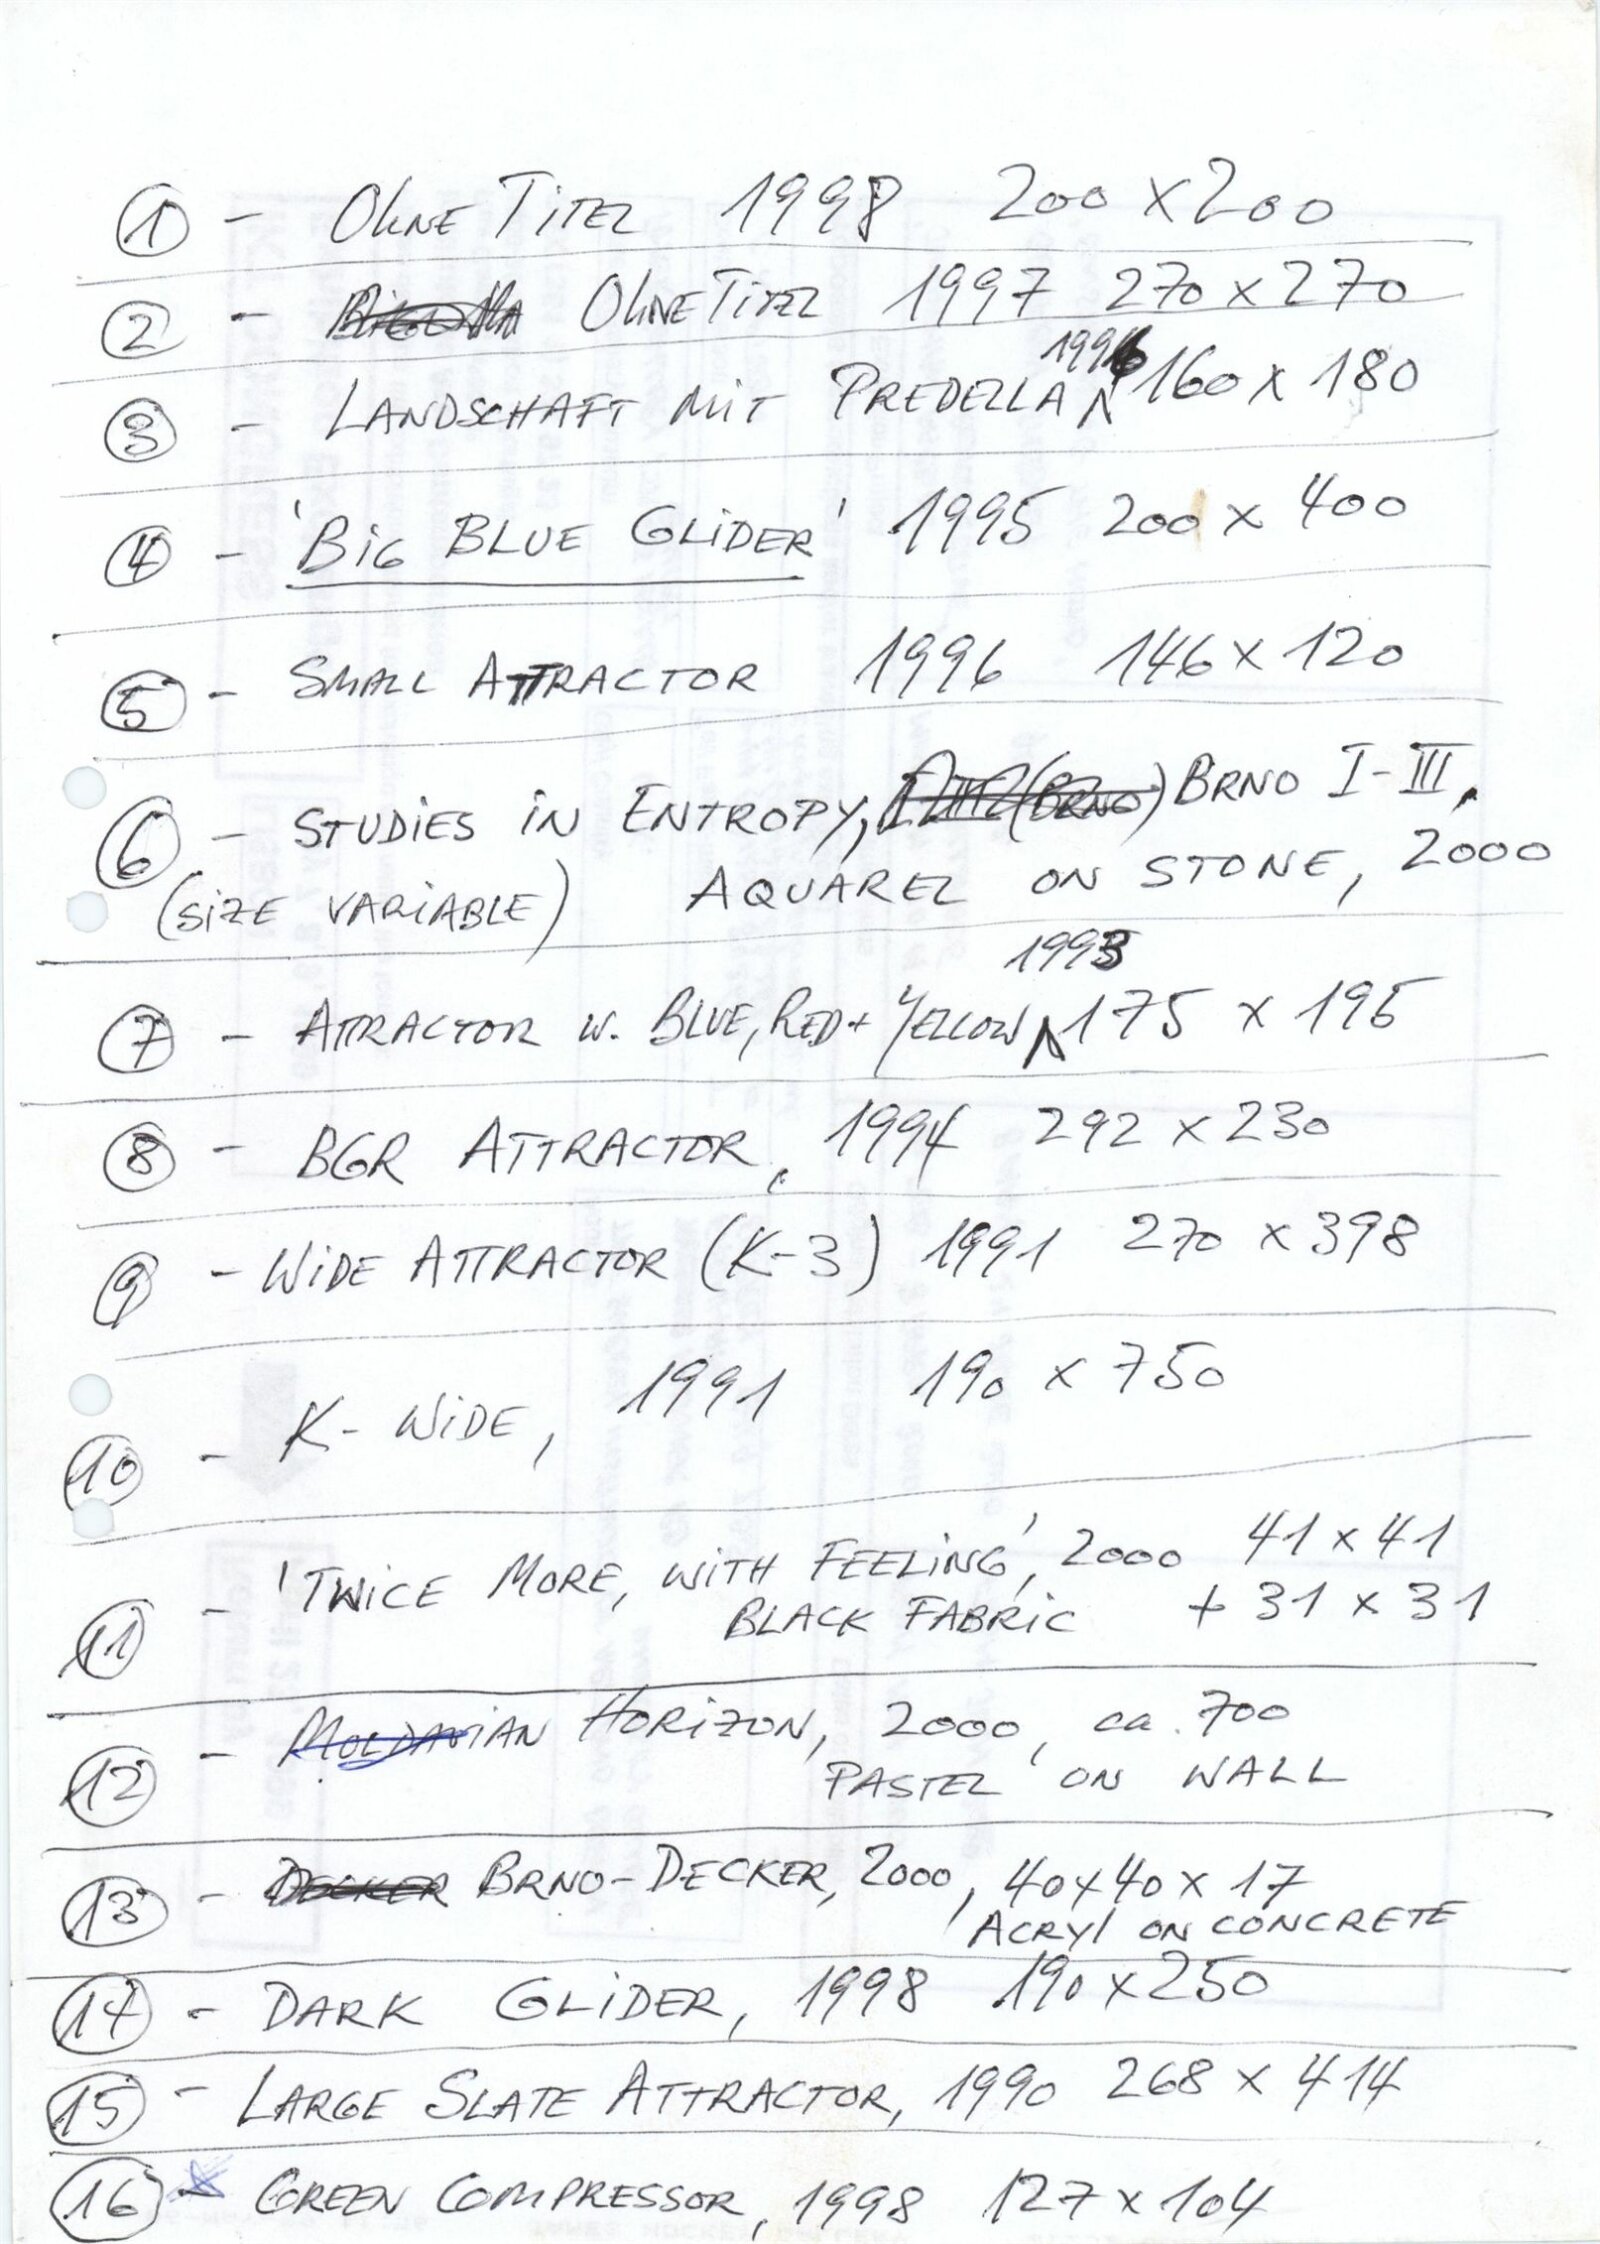 ① - OHNE TITEL 1998 200 x 200
② - OHNE TITEL 1997 270 x 270
1996
③ - LANDSCHAFT MIT PREDELLA 160 x 180
④ - 'BIG BLUE GLIDER' 1995 200 x 400
⑤ - SMALL ATTRACTOR 1996 146 x 120
⑥ - STUDIES IN ENTROPY, (BRNO) BRNO I-III,
(SIZE VARIABLE) AQUAREL ON STONE, 2000
1993
⑦ - ATTRACTOR W. BLUE, RED + YELLOW 175 x 195
⑧ - BGR ATTRACTOR, 1994 292 x 230
⑨ - WIDE ATTRACTOR (K-3) 1991 270 x 398
⑩ - K-WIDE, 1991 190 x 750
⑪ - 'TWICE MORE, WITH FEELING', 2000 41 x 41
BLACK FABRIC + 31 x 31
⑫ - MOLDAVIAN HORIZON, 2000, ca. 700
PASTEL ON WALL
⑬ - DECKER BRNO-DECKER, 2000, 40x40x17
ACRYL ON CONCRETE
⑭ - DARK GLIDER, 1998 190 x 250
⑮ - LARGE SLATE ATTRACTOR, 1990 268 x 414
⑯ - GREEN COMPRESSOR, 1998 127 x 104